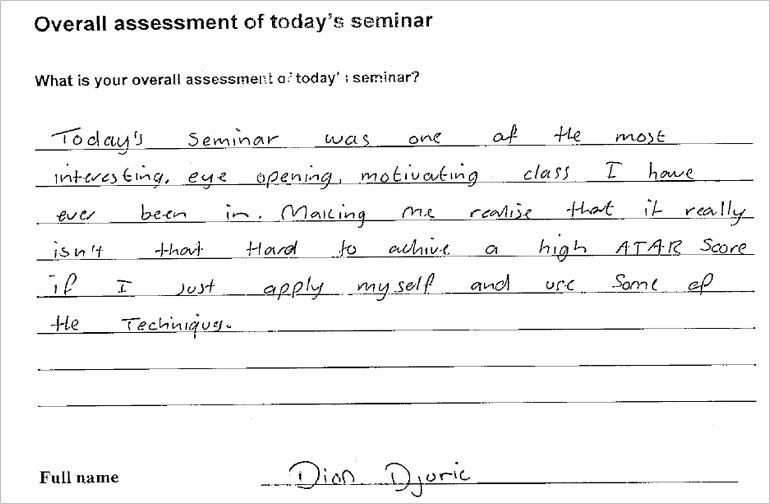 Overall assessment of today's seminar
What is your overall assessment of today's seminar?
Today's seminar was one of the most
interesting, eye opening, motivating class I have
ever been in. Making me realise that it really
isn't that Hard to achive a high ATAR Score
if I just apply myself and use some of
the Techniques.
Full name Dion Djuric